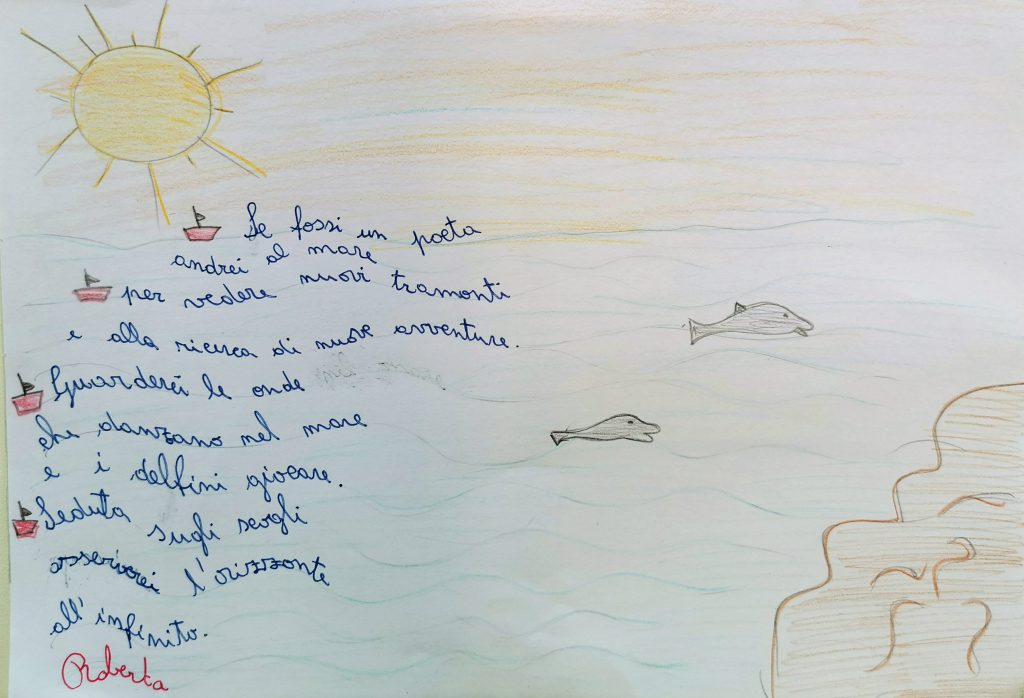 Se fossi un poeta
andrei al mare
per vedere nuovi tramonti
e alla ricerca di nuove avventure.
Guarderei le onde
che danzano nel mare
e i delfini giocare.
Seduta sugli scogli
osserverei l'orizzonte
all'infinito.
Roberta